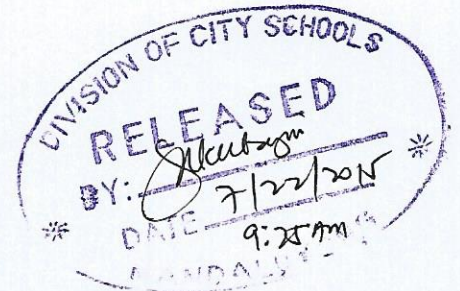 DIVISION OF CITY SCHOOLS
RELEASED
BY:
DATE 7/22/2015
9:25 AM